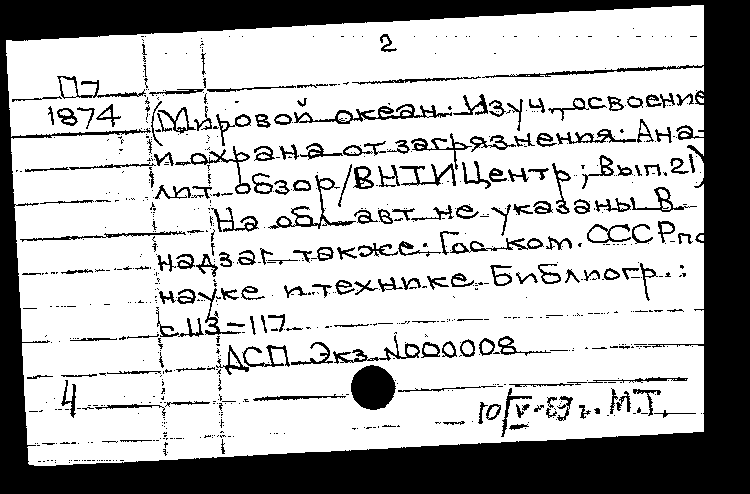 2
П7
1874
(Мировой океан: Изуч., освоение
и охрана от загрязнения: Ана-
лит. обзор/ВНТИЦентр; Вып.21)
На обл. авт. не указаны. В
надзаг. также: Гос. ком. СССР по
науке и технике. Библиогр.:
с.113-117
ДСП Экз. N000008
4
10/V-89 г. М.Т.